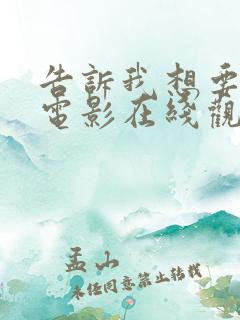 告訴我想要
電影在綫觀
孟山
未经同意禁止转载